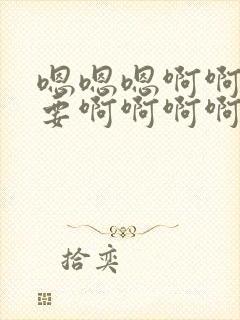 嗯嗯嗯啊啊
要啊啊啊啊
拾奕